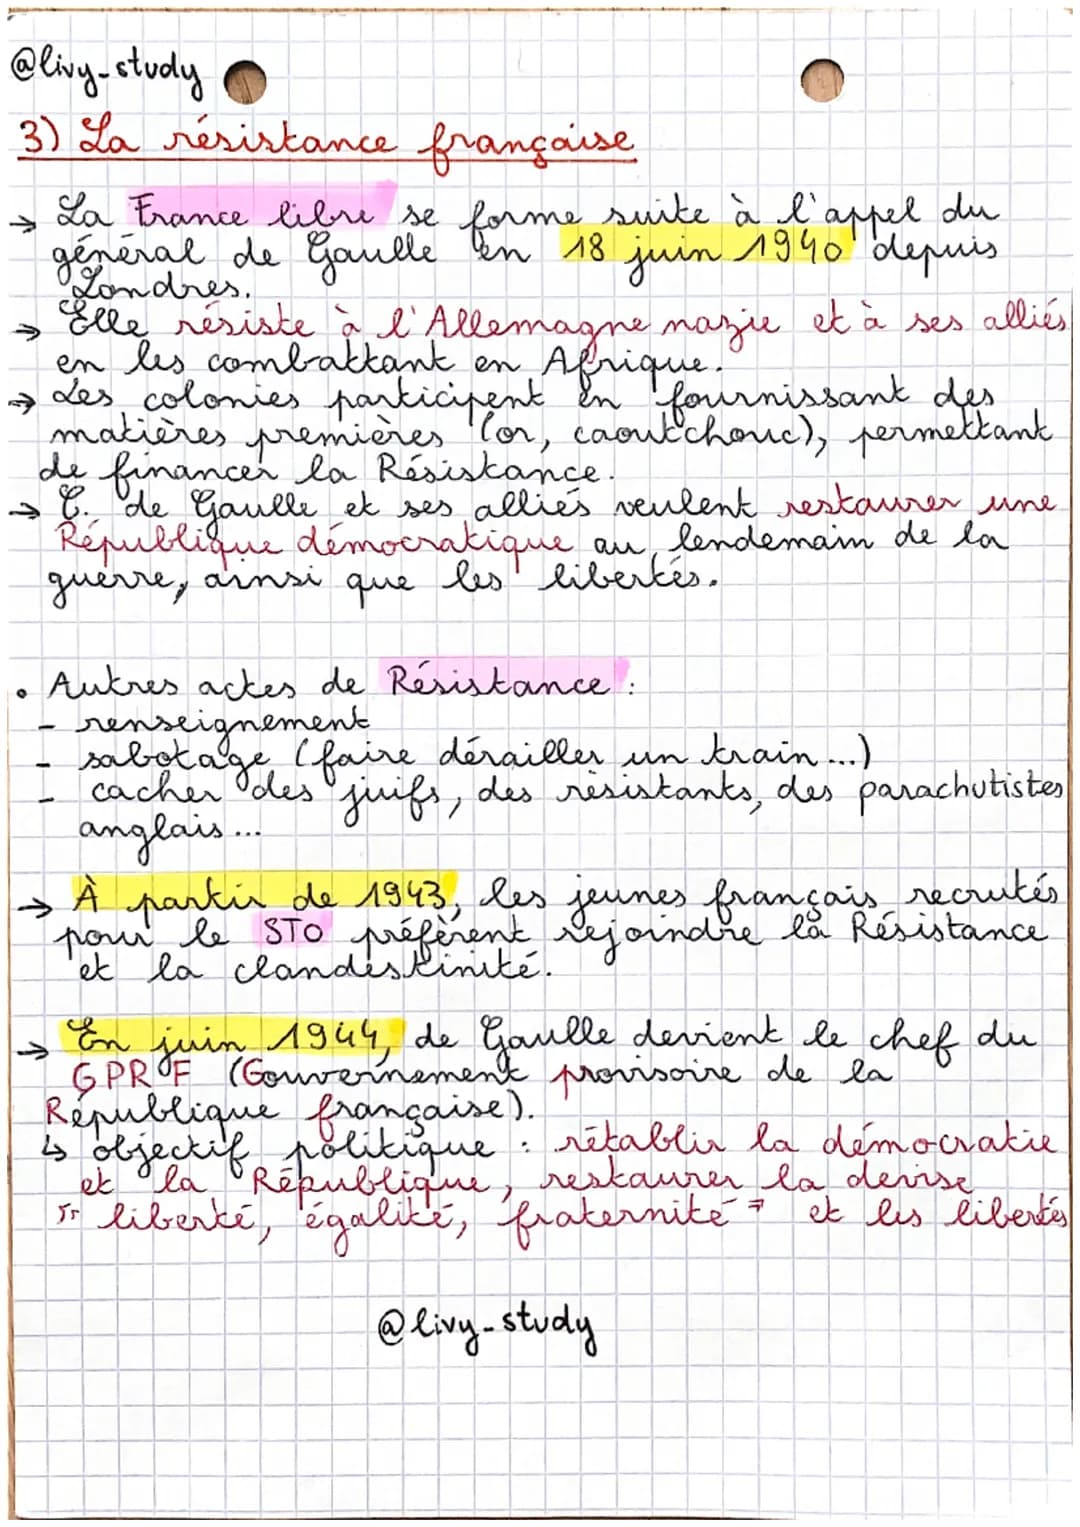 @livy_study
3) La résistance française
→ La France libre se forme suite à l'appel du
général de Gaulle en 18 juin 1940 depuis
Londres.
→ Elle résiste à l'Allemagne nazie et à ses alliés
en les combattant en Afrique.
→ Les colonies participent en fournissant des
matières premières (or, caoutchouc), permettant
de financer la Résistance.
→ C. de Gaulle et ses alliés veulent restaurer une
République démocratique au lendemain de la
guerre, ainsi que les libertés.
• Autres actes de Résistance :
- renseignement
- sabotage (faire dérailler un train...)
- cacher des juifs, des résistants, des parachutistes
anglais...
→ À partir de 1943, les jeunes français recrutés
pour le STO préfèrent rejoindre la Résistance
et la clandestinité.
→ En juin 1944, de Gaulle devient le chef du
GPRF (Gouvernement provisoire de la
République française).
↳ objectif politique : rétablir la démocratie
et la République, restaurer la devise
"liberté, égalité, fraternité" et les libertés
@livy_study